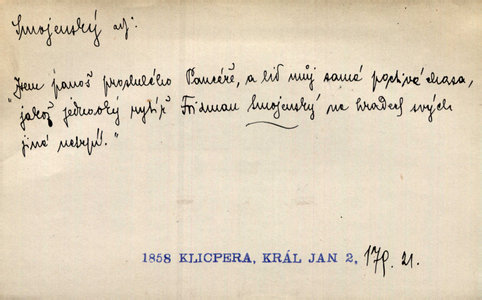 Smojenský adj:
"Jsem panoš proslulého Pancéře, a lid můj samá poctivá chasa,
jakož jednooký rytíř Frisman Smojenský na hradech svých
jiné netrpí."
1858 KLICPERA, KRÁL JAN 2, 21.